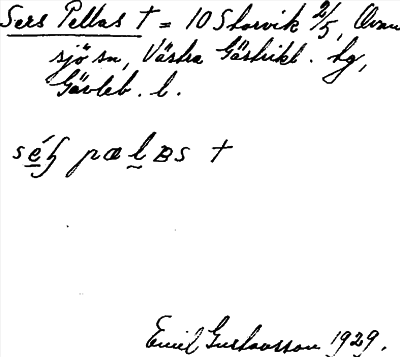 Sers Pellas † = 10 Storvik 2/5, Ovan
sjö sn, Västra Gästrikl. hg,
Gävleb. l.
Emil Gustavsson 1929.